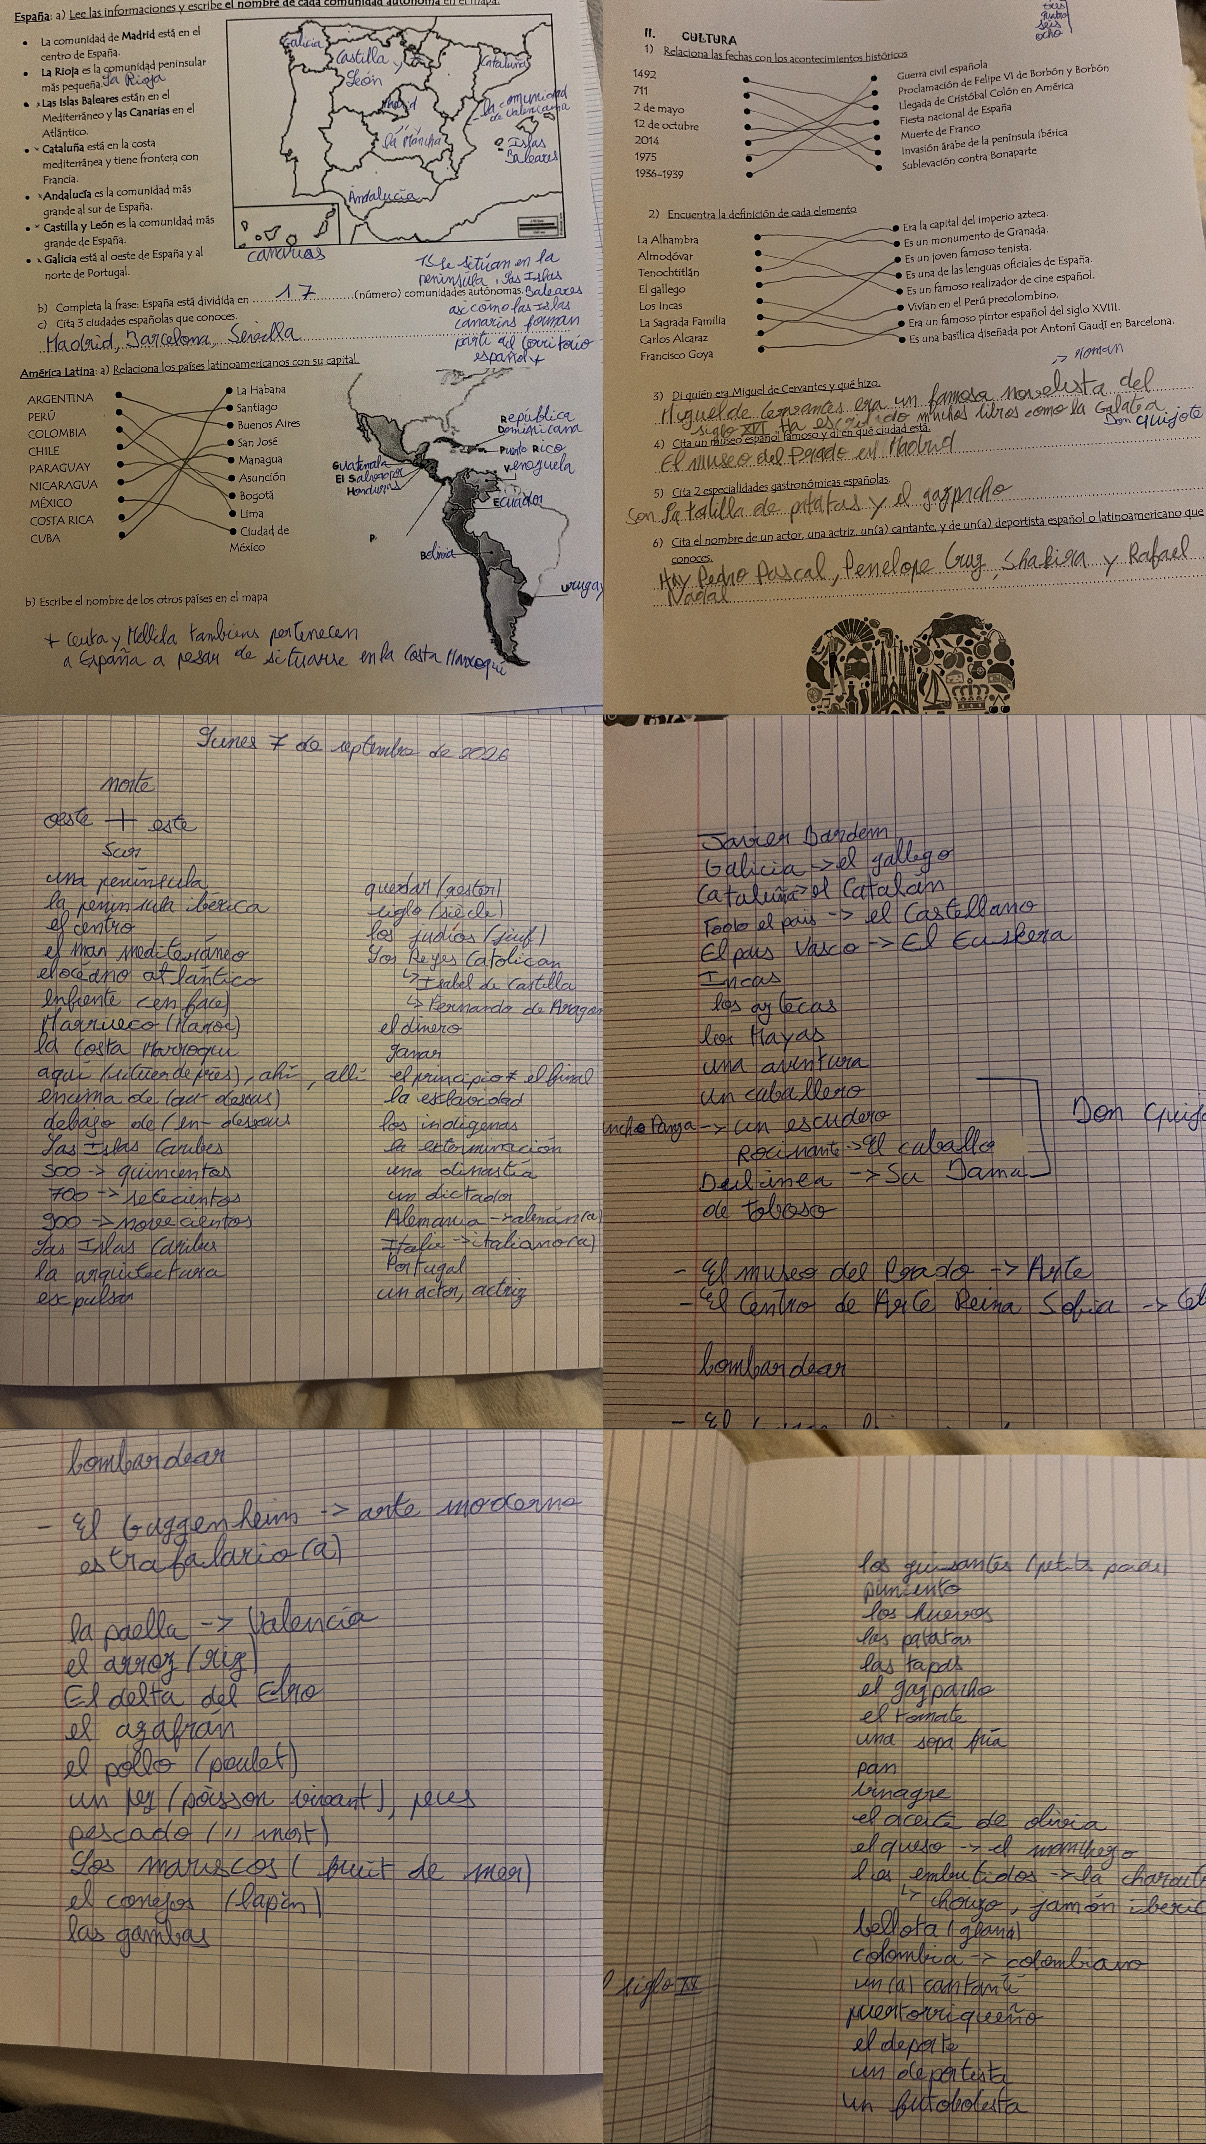 España: a) Lee las informaciones y escribe el nombre de cada comunidad autónoma en el mapa.
La comunidad de Madrid está en el
centro de España.
La Rioja es la comunidad peninsular
más pequeña. La Rioja
Las Islas Baleares están en el
Mediterráneo y las Canarias en el
Atlántico.
Cataluña está en la costa
mediterránea y tiene frontera con
Francia.
Andalucía es la comunidad más
grande al sur de España.
Castilla y León es la comunidad más
grande de España.
Galicia está al oeste de España y al
norte de Portugal.
Galicia
Castilla y
León
Cataluña
Madrid
la comunidad
de valenciana
la Mancha
Islas
Baleares
Andalucía
canarias
15 se sitúan en la
península, las Islas
Baleares
así como las Islas
canarias forman
parte del territorio
español +
b) Completa la frase: España está dividida en 17 (número) comunidades autónomas.
c) Cita 3 ciudades españolas que conoces.
Madrid, Barcelona, Sevilla
América Latina: a) Relaciona los países latinoamericanos con su capital.
ARGENTINA
PERÚ
COLOMBIA
CHILE
PARAGUAY
NICARAGUA
MÉXICO
COSTA RICA
CUBA
La Habana
Santiago
Buenos Aires
San José
Managua
Asunción
Bogotá
Lima
Ciudad de
México
República
Dominicana
Puerto Rico
Venezuela
Guatemala
El Salvador
Honduras
Ecuador
P.
Bolivia
Uruguay
b) Escribe el nombre de los otros países en el mapa
+ Ceuta y Mellila tambiens pertenecen
a España a pesar de situarse en la Costa Marroquí
tres
cuatro
seis
ocho
II. CULTURA
1) Relaciona las fechas con los acontecimientos históricos
1492
711
2 de mayo
12 de octubre
2014
1975
1936-1939
Guerra civil española
Proclamación de Felipe VI de Borbón y Borbón
Llegada de Cristóbal Colón en América
Fiesta nacional de España
Muerte de Franco
Invasión árabe de la península ibérica
Sublevación contra Bonaparte
2) Encuentra la definición de cada elemento
La Alhambra
Almodóvar
Tenochtitlán
El gallego
Los Incas
La Sagrada Familia
Carlos Alcaraz
Francisco Goya
Era la capital del imperio azteca.
Es un monumento de Granada.
Es un joven famoso tenista.
Es una de las lenguas oficiales de España.
Es un famoso realizador de cine español.
Vivían en el Perú precolombino.
Era un famoso pintor español del siglo XVIII.
Es una basílica diseñada por Antoni Gaudí en Barcelona.
-> roman
3) Di quién era Miguel de Cervantes y qué hizo.
Miguel de Cervantes era un famoso novelista del
siglo XVI. Ha escribido muchos libros como la Galatea
Don Quijote
4) Cita un museo español famoso y di en qué ciudad está.
El museo del Prado en Madrid
5) Cita 2 especialidades gastronómicas españolas.
Son la tortilla de patatas y el gazpacho
6) Cita el nombre de un actor, una actriz, un(a) cantante, y de un(a) deportista español o latinoamericano que
conoces.
Hay Pedro Pascal, Penelope Cruz, Shakira y Rafael
Nadal
Lunes 7 de septembre de 2026
norte
oeste + este
sur
una península
la península ibérica
el centro
el mar mediterráneo
el océano atlántico
enfrente (en face)
Marrueco (Maroc)
la costa Marroquí
aquí (situer de près), ahí, allí
encima de (au-dessus)
debajo de (en-dessous
Las Islas Caribes
500 -> quinientos
700 -> setecientos
900 -> novecientos
Las Islas Caribes
la arquitectura
expulsar
quedar (rester)
siglo (siècle)
los judíos (juif)
Los Reyes Catolican
↳ Isabel de Castilla
↳ Fernando de Aragon
el dinero
ganar
el principio ≠ el final
la esclavodad
los indígenas
la exterminación
una dinastía
un dictador
Alemania -> alemán(a)
Italie -> italiano(a)
Portugal
un actor, actriz
Javier Bardem
Galicia -> el gallego
Cataluña -> el Catalán
Todo el país -> el Castellano
El país Vasco -> El Euskera
Incas
los aztecas
los Mayas
una aventura
un caballero
ncho Panza -> un escudero
Rocinante -> El caballo
Dulcinea -> Su Dama
de Toboso
Don Quijo
- El museo del Prado -> Arte
- El Centro de Arte Reina Sofía ->
bombardear
bombardear
- El Guggenheim -> arte moderno
estrafalario(a)
la paella -> Valencia
el arroz (riz)
El delta del Ebro
el azafrán
el pollo (poulet)
un pez (poisson vivant), peces
pescado (" mort)
Los mariscos (fruit de mer)
el conejos (lapin)
las gambas
los guisantes (petits pois)
pimiento
los huevos
las patatas
las tapas
el gazpacho
el tomate
una sopa fría
pan
vinagre
el aceite de olivia
el queso -> el manchego
los embutidos -> la charcut
↳ chorizo, jamón iberic
bellota (gland)
colombia -> colombiano
un(a) cantante
puertorriqueño
el deporte
un deportista
un futobolista
siglo XX